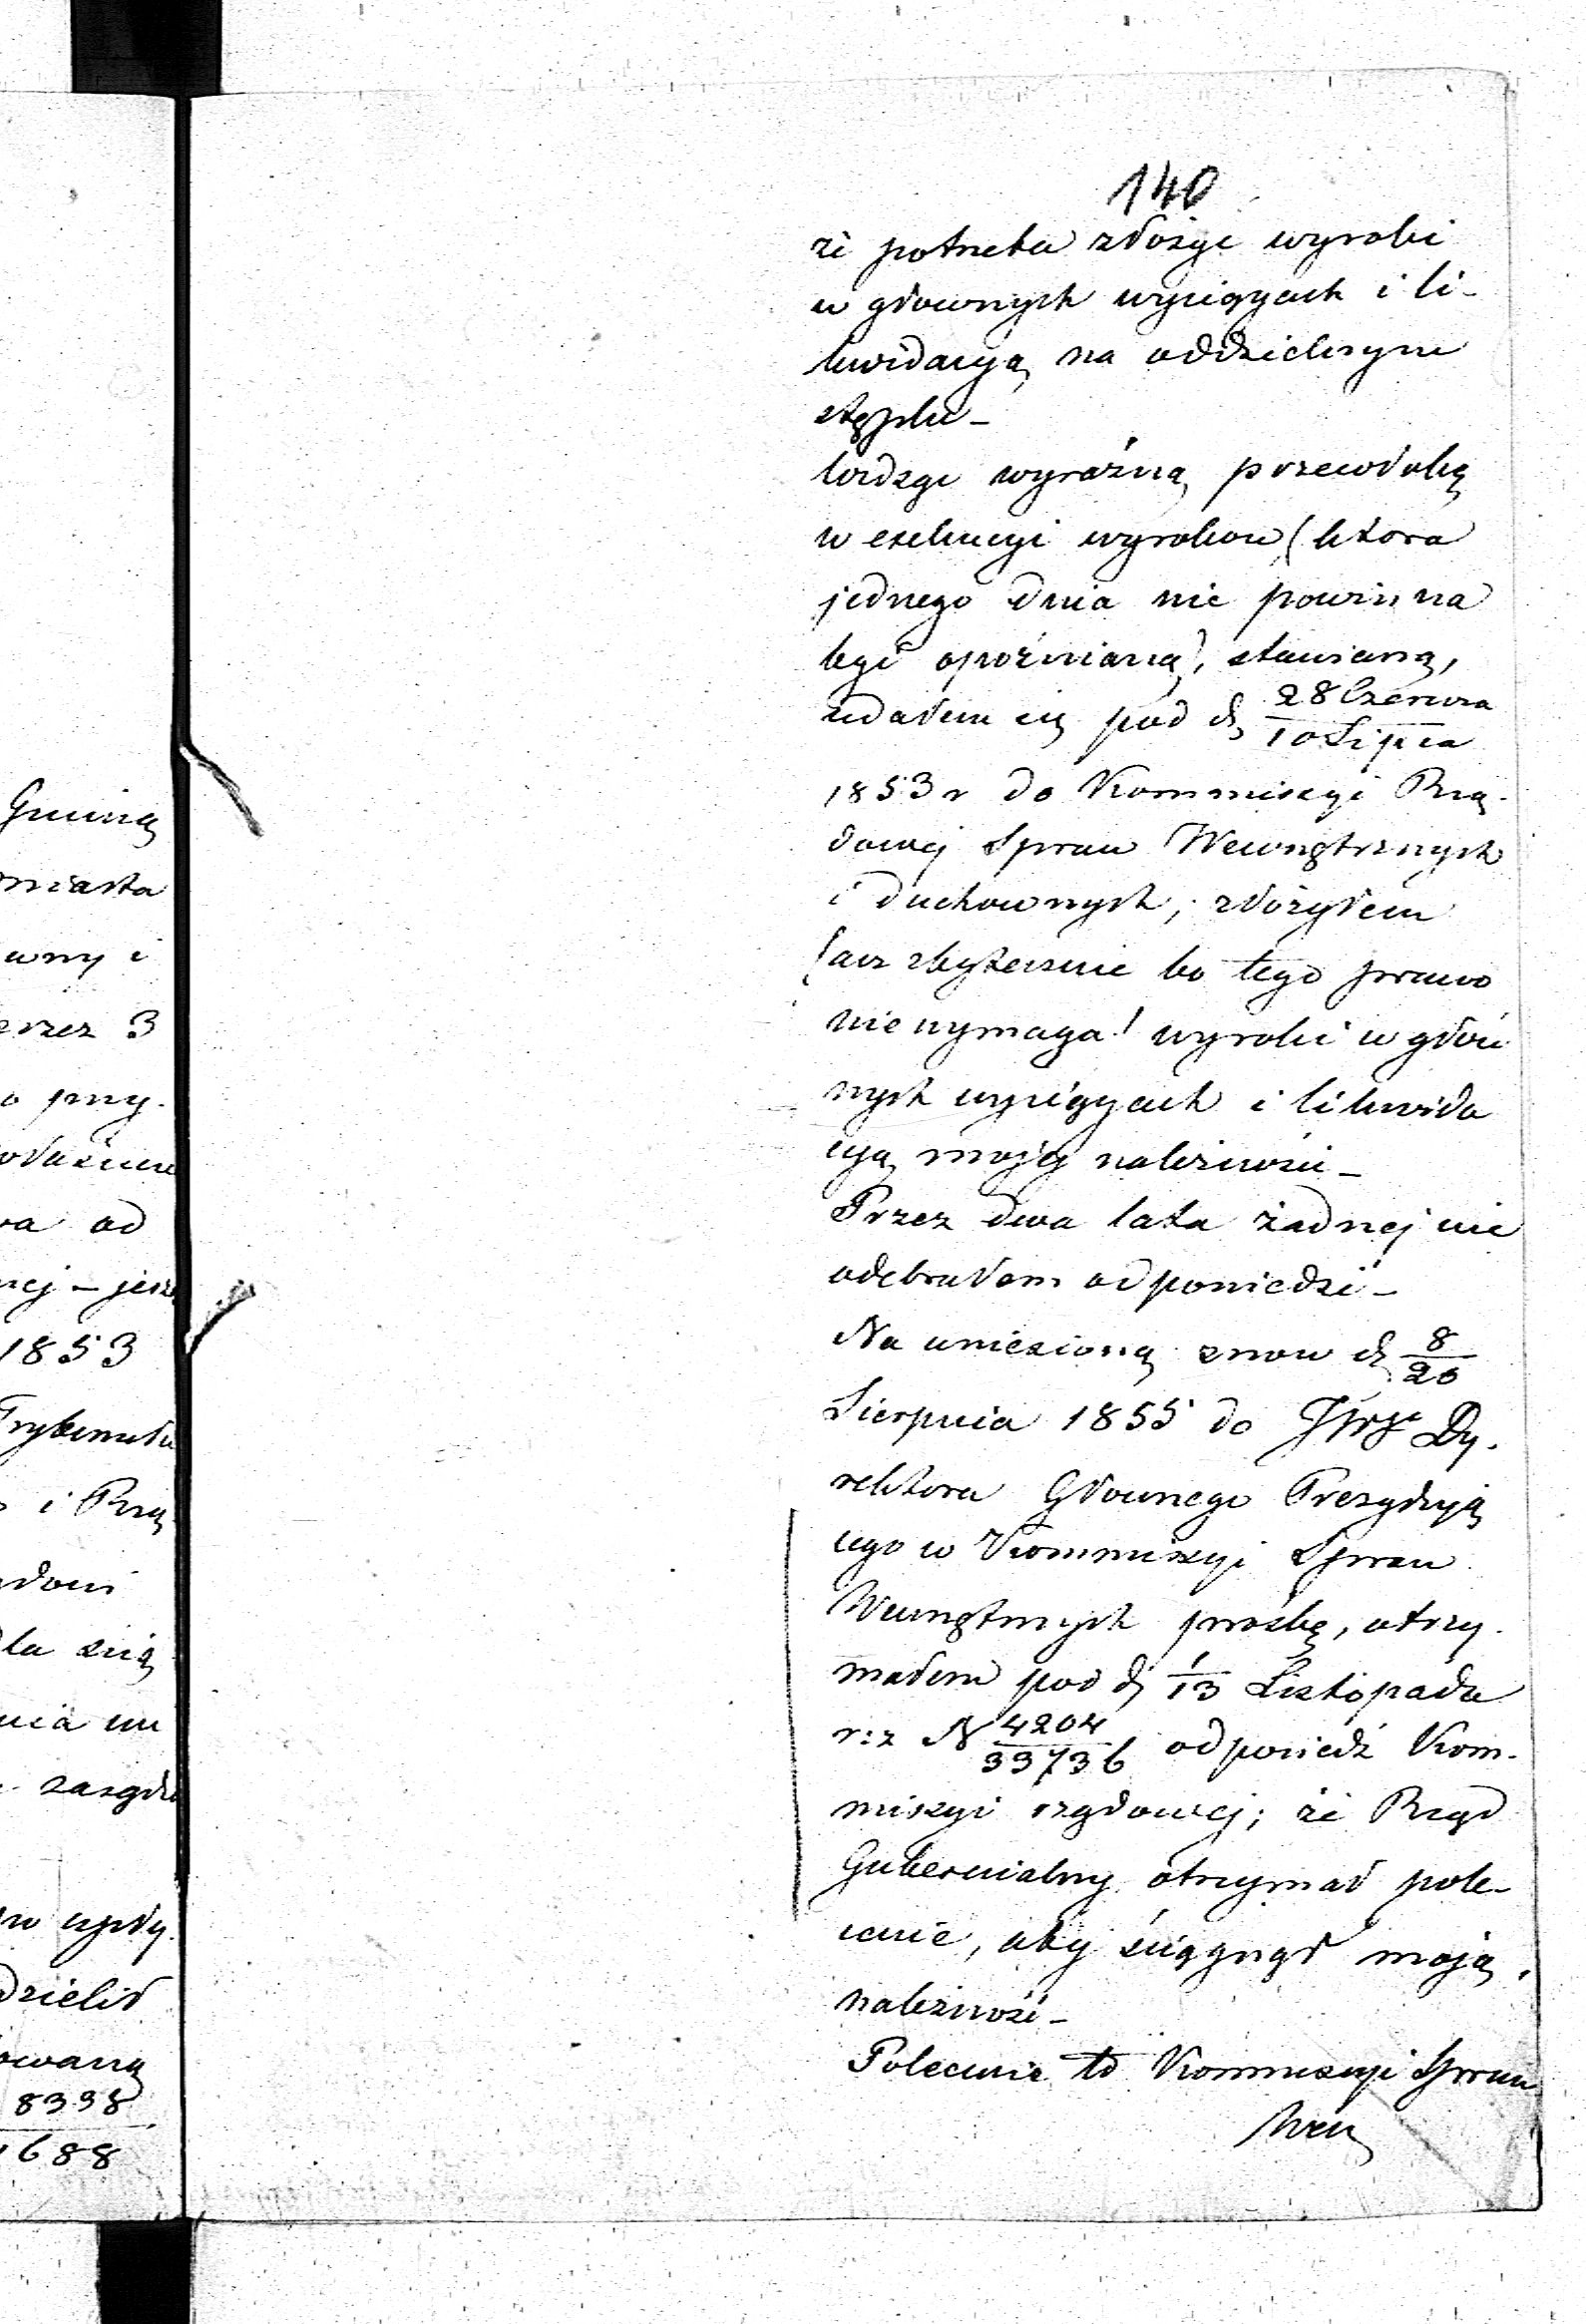 140
że potrzeba złożyć wyroki
w głównych wyciągach i li-
kwidacyą na oddzielnym
stęplu -
Widząc wyraźną przewłokę
w exekucyi wyroków (która
jednego dnia nie powinna
być opoźnianą), stawianą,
udałem się pod d. 28 Czerwca / 10 Lipca
1853 r do Kommissyi Rzą-
dowej Spraw Wewnętrznych
i Duchownych, złożyłem
(acz zbytecznie bo tego prawo
nie wymaga) wyroki w głów
nych wyciągach i likwida
cyą mojéj należności -
Przez dwa lata żadnej nie
odebrałem odpowiedzi -
Na wniesioną znow d. 8/20
Sierpnia 1855 do JW Dy-
rektora Głównego Prezydują
cego w Kommissyi Spraw
Wewnętrznych prośbę, otrzy-
małem pod d. 1/13 Listopada
r: z N 4204/33736 odpowiedź Kom-
missyi rządowej; że Rząd
Gubernialny otrzymał pole-
cenie, aby ściągnął moją
należność -
Polecenie to Kommissyi Spraw
Wew
Gminą
miasta
awny i
przez 3
o przy-
ra od
nej - jesz
1853
Trybunału
i Rzą
dla
dzielił
owaną
8398
1688